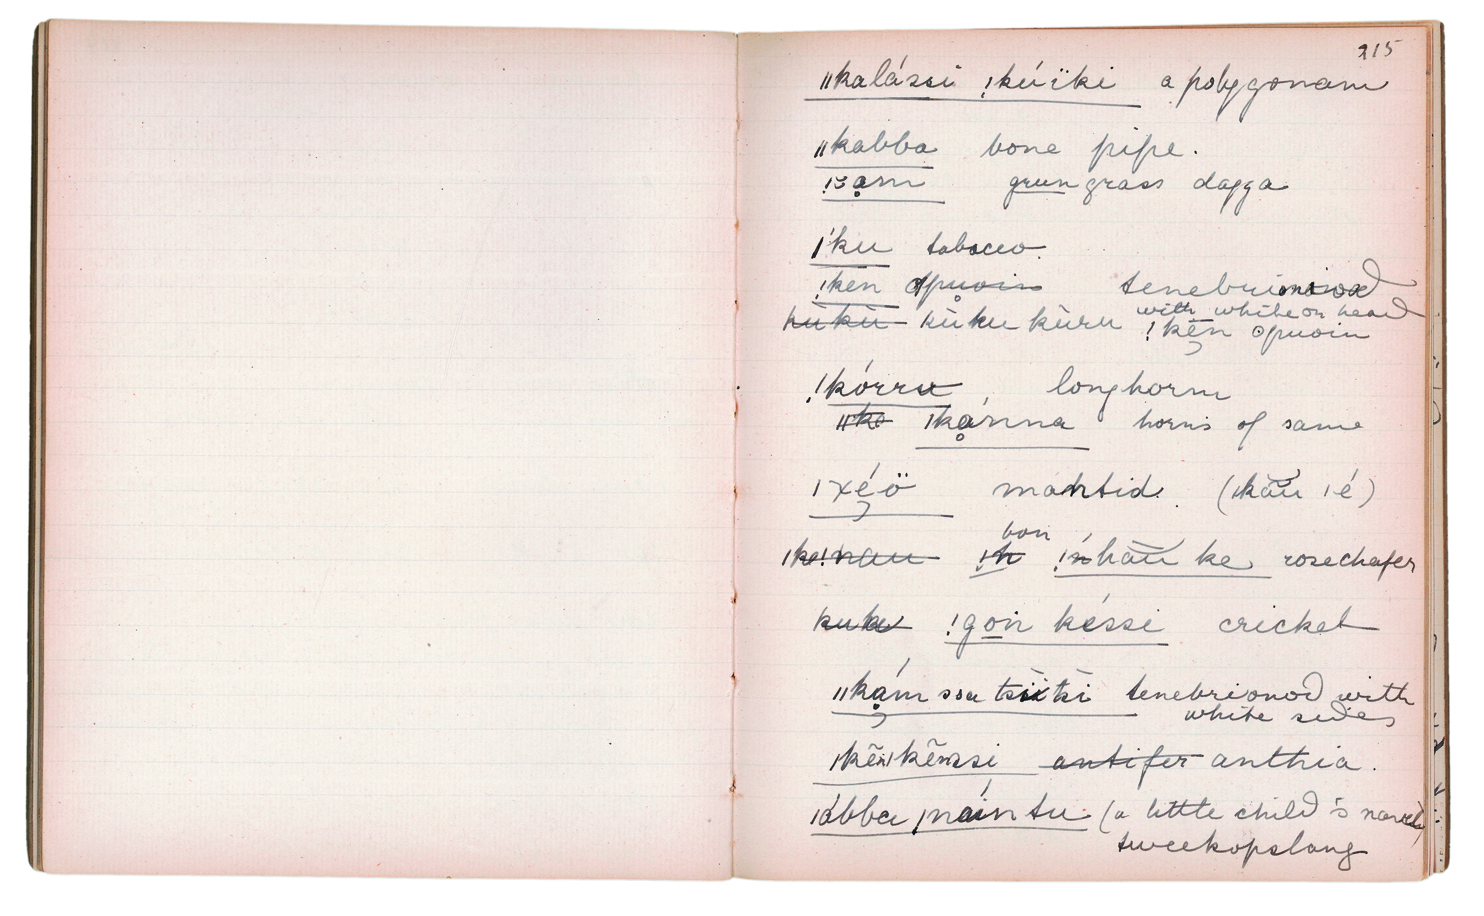 215
ǁkalássi !kúïki a polygonam
ǁkabba bone pipe.
grun grass dagga
ǀ'ku tobacco.
!ken opuoin tenebrionod
kùkù kùku kùru with white on head
!kẽn opuoin
!kórru longhorn
ǁko ǀkánna horns of same
ǀxéö mantid. (ǀkãũ ǀé)
bon
!ńhãũ ke rosechafer
kuku !goin késsi cricket
ǁkám ssa tsïtsi tenebrionod with
white sides
ǀkẽnǀkẽnssi antifer anthia.
ǀábba ǀnáintu (a little child's navel)
tweekopslang